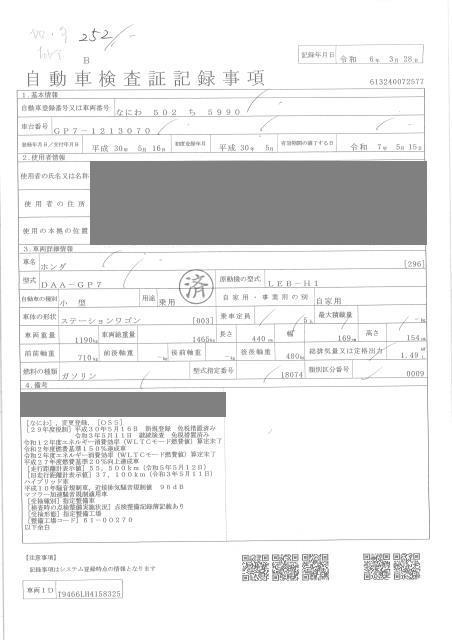 252/-
B
記録年月日 令和 6年 3月 28日
自動車検査証記録事項
613240072577
1.基本情報
自動車登録番号又は車両番号 なにわ 502 ち 5990
車台番号 GP7-1213070
登録年月日/交付年月日 平成 30年 5月 16日 初度登録年月 平成 30年 5月 有効期間の満了する日 令和 7年 5月 15日
2.使用者情報
使用者の氏名又は名称
使用者の住所
使用の本拠の位置
3.車両詳細情報
車名 ホンダ [296]
型式 DAA-GP7 済 原動機の型式 LEB-H1
自動車の種別 小型 用途 乗用 自家用・事業用の別 自家用
車体の形状 ステーションワゴン [003] 乗車定員 5人 最大積載量 -kg
車両重量 1190kg 車両総重量 1465kg 長さ 440cm 幅 169cm 高さ 154cm
前前軸重 710kg 前後軸重 -kg 後前軸重 -kg 後後軸重 480kg 総排気量又は定格出力 1.49L
燃料の種類 ガソリン 型式指定番号 18074 類別区分番号 0009
4.備考
[なにわ],変更登録,[OSS]
[29年度税制]平成30年5月16日 新規登録 免税措置済み
令和3年5月11日 継続検査 免税措置済み
令和12年度エネルギー消費効率(WLTCモード燃費値)算定未了
令和2年度燃費基準150%達成車
令和2年度エネルギー消費効率(WLTCモード燃費値)算定未了
平成27年度燃費基準20%向上達成車
[走行距離計表示値]55,500km(令和5年5月12日)
[旧走行距離計表示値]37,100km(令和3年5月11日)
ハイブリッド車
平成10年騒音規制車,近接排気騒音規制値 96dB
マフラー加速騒音規制適用車
[受検種別]指定整備車
[検査時の点検整備実施状況]点検整備記録簿記載あり
[受検形態]指定整備工場
[整備工場コード]61-00270
以下余白
[注意事項]
記録事項はシステム登録時点の情報となります
車両ID T9466LH4158325